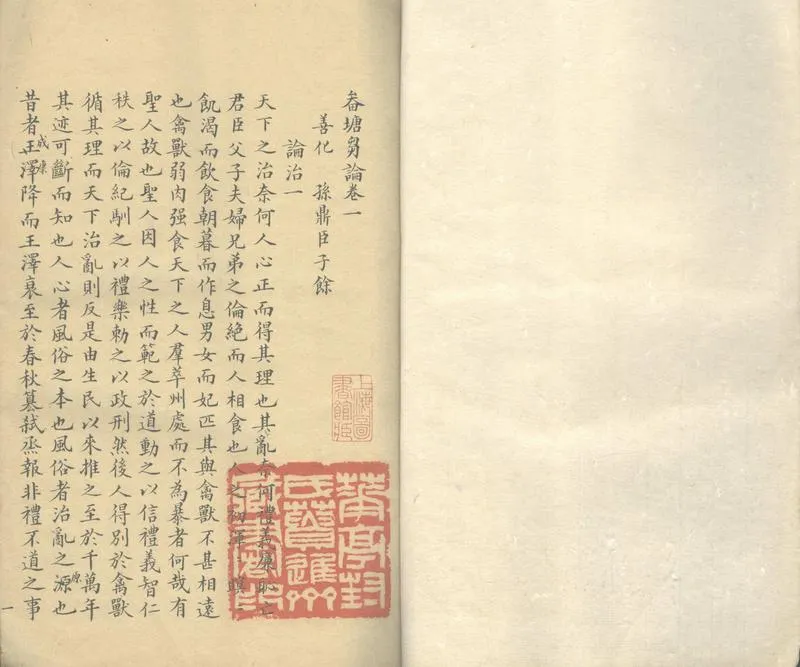 畚塘芻論卷一
善化 孫鼎臣子餘
論治一
天下之治奈何人心正而得其理也其亂奈何禮義廉恥亡
君臣父子夫婦兄弟之倫絕而人相食也人之初渾
飢渴而飲食朝暮而作息男女而妃匹其與禽獸不甚相遠
也禽獸弱肉强食天下之人羣萃州處而不為暴者何哉有
聖人故也聖人因人之性而範之於道動之以信禮義智仁
秩之以倫紀馴之以禮樂勅之以政刑然後人得別於禽獸
循其理而天下治亂則反是由生民以來推之至於千萬年
其迹可斷而知也人心者風俗之本也風俗者治亂之源也
原
昔者王澤降而王澤衰至於春秋篡弒烝報非禮不道之事
成康
一
上海圖
書館藏
華亭封
氏簣進
齋藏書印